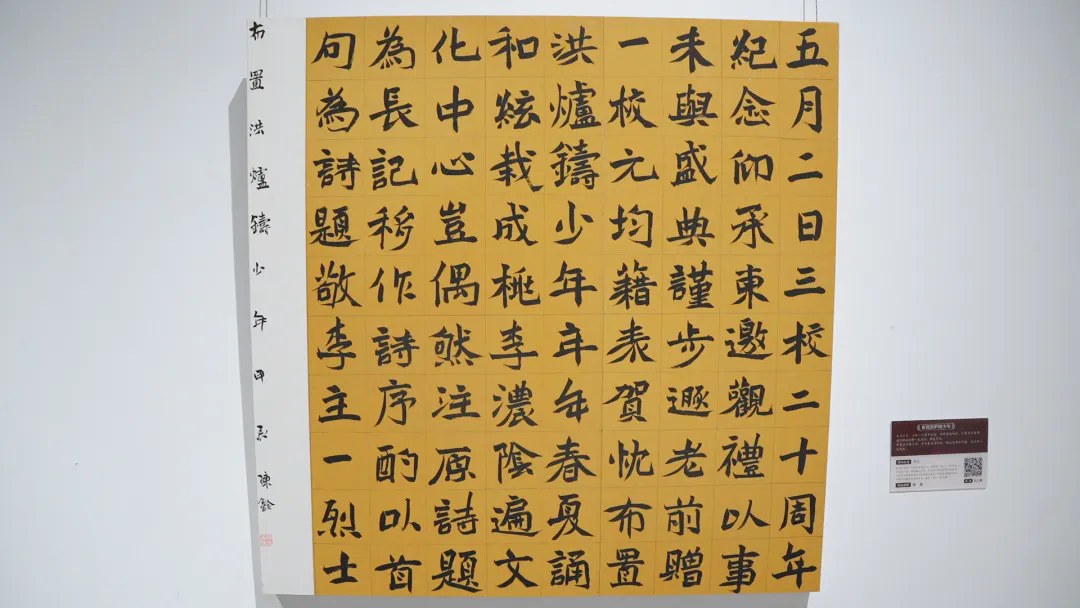 五月二日三校二十周年
紀念仰承東邀觀禮以事
未與盛典謹步遯老前贈
一校元均籍表賀忱布置
洪爐鑄少年年年春夏誦
和絃栽成桃李濃陰遍文
化中心豈偶然注原詩題
為長記移作詩序酌以首
句為詩題敬李主一烈士
布置洪爐鑄少年甲辰陳